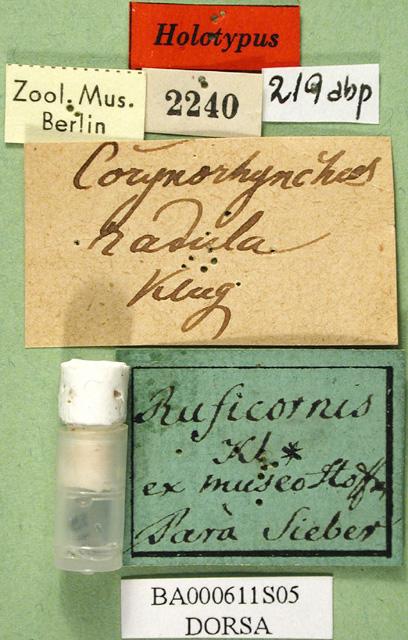 Holotypus
Zool. Mus.
Berlin
2240
219 abp
Corynorhynchus
radula
Klug
Ruficornis
Kl. *
ex museo Hoffm
Parà Sieber
BA000611S05
DORSA